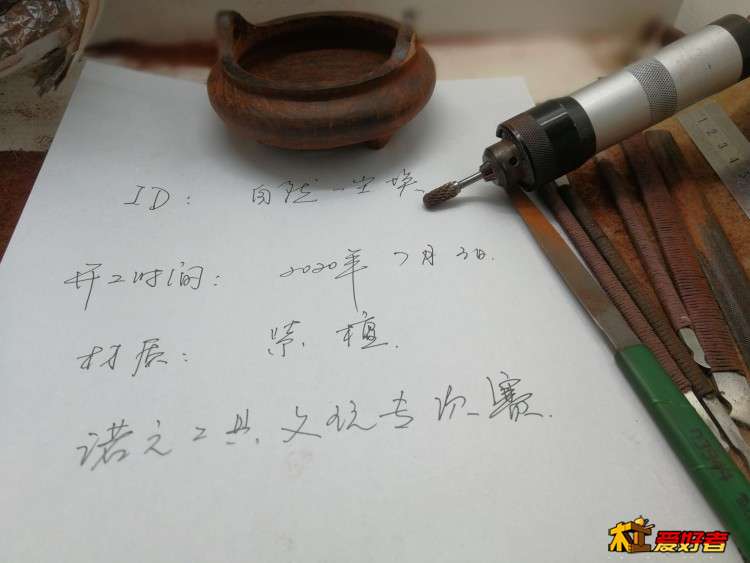 ID: 自然一尘埃
开工时间: 2020年7月3日.
材质: 紫檀.
诺克工具文玩专项赛.
1 2 3 4
木工爱好者